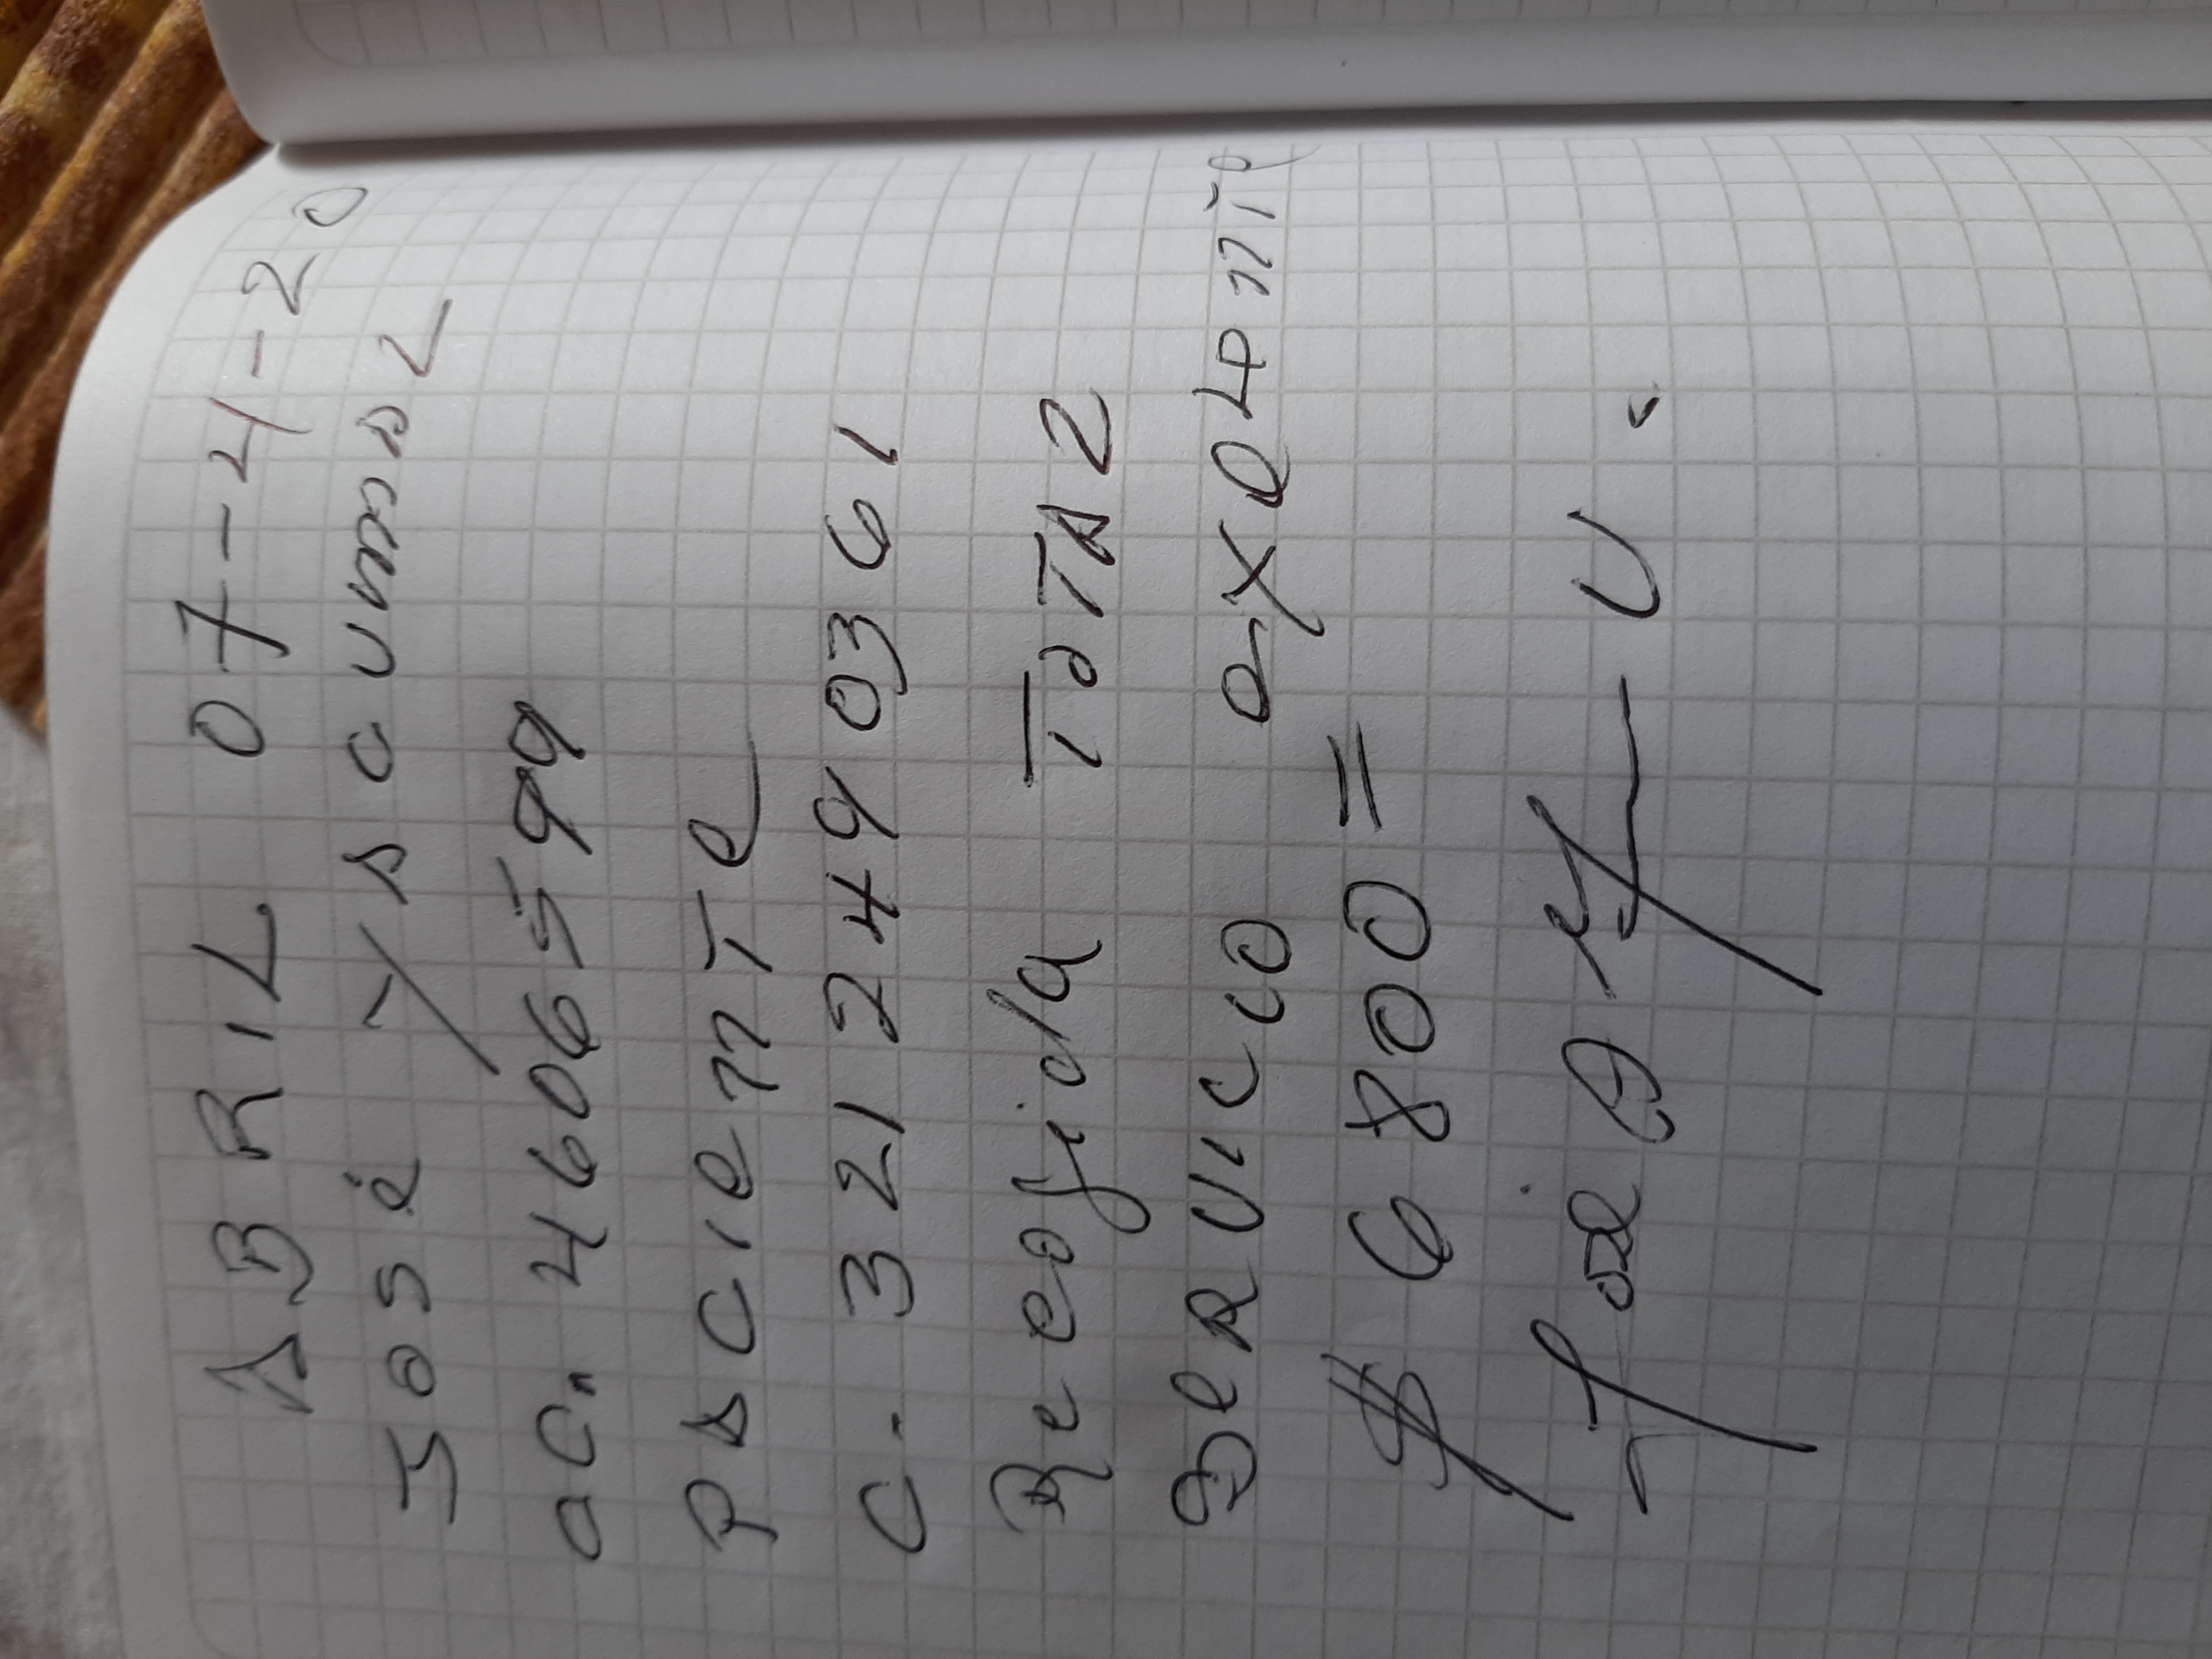 ABRIL 07-4-20
José Yacumal
CC. 46065999
Paciente
C. 3212490361
Recojida Total
Servico exelente
$ 6800=
José